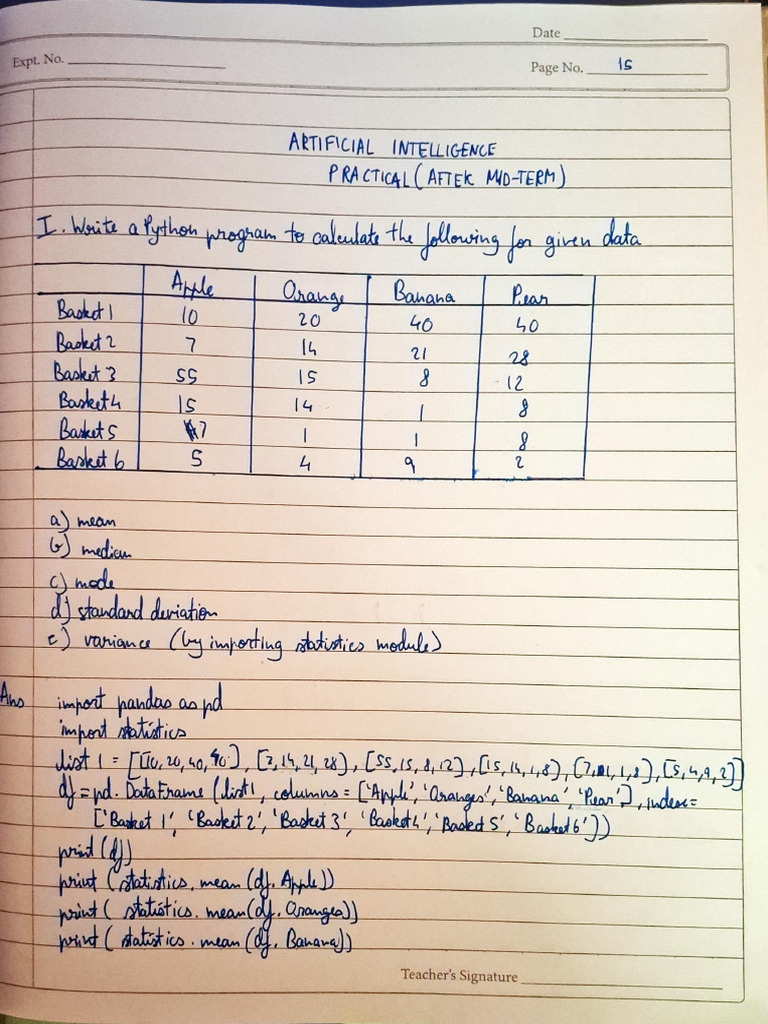 Date
Expt. No.
Page No. 15
ARTIFICIAL INTELLIGENCE
PRACTICAL (AFTER MID-TERM)
I. Write a Python program to calculate the following for given data
Apple Orange Banana Pear
Basket 1 10 20 40 40
Basket 2 7 14 21 28
Basket 3 55 15 8 12
Basket 4 15 14 1 8
Basket 5 7 1 1 8
Basket 6 5 4 9 2
a) mean
b) median
c) mode
d) standard deviation
e) variance (by importing statistics module)
Ans import pandas as pd
import statistics
list 1 = [[10, 20, 40, 40], [7, 14, 21, 28], [55, 15, 8, 12], [15, 14, 1, 8], [7, 1, 1, 8], [5, 4, 9, 2]]
df = pd. DataFrame (list1, columns = ['Apple', 'Oranges', 'Banana', 'Pear'], index=
['Basket 1', 'Basket 2', 'Basket 3', 'Basket4', 'Basket 5', 'Basket 6'])
print (df)
print (statistics. mean (df. Apple))
print ( statistics. mean(df. Oranges))
print ( statistics. mean (df. Banana))
Teacher's Signature